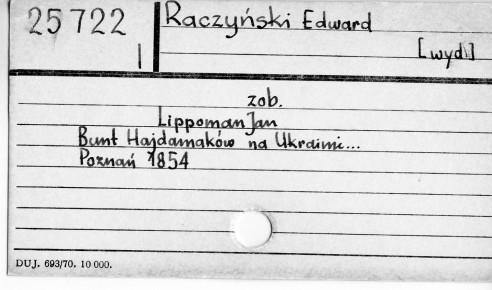 25722
I
Raczyński Edward
[wyd.]
zob.
Lippoman Jan
Bunt Hajdamaków na Ukraini...
Poznań 1854
DUJ. 693/70. 10 000.